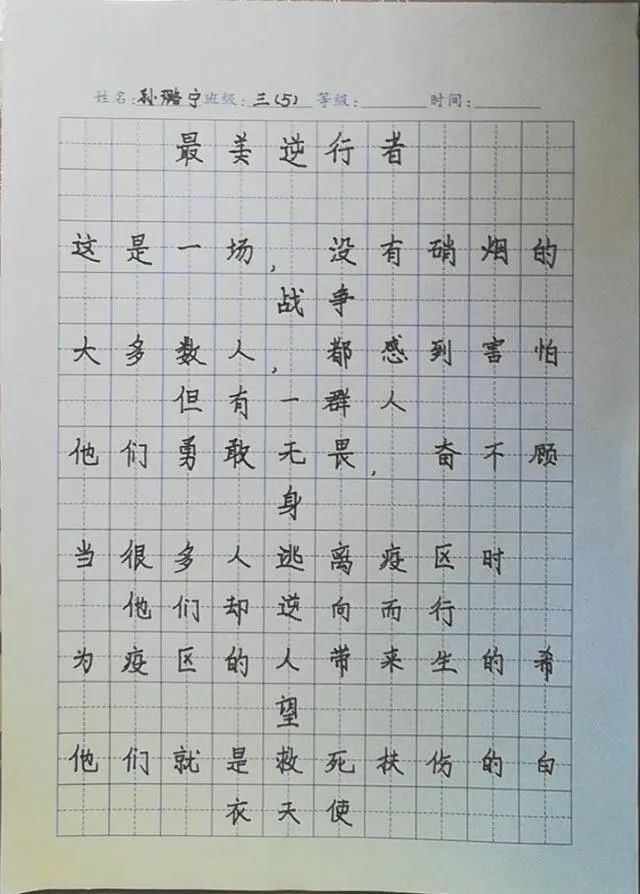 姓名:孙璐宁班级:三(5) 等级:________时间:________
最美逆行者
这是一场,没有硝烟的
战争
大多数人,都感到害怕
但有一群人
他们勇敢无畏,奋不顾
身
当很多人逃离疫区时
他们却逆向而行
为疫区的人带来生的希
望
他们就是救死扶伤的白
衣天使